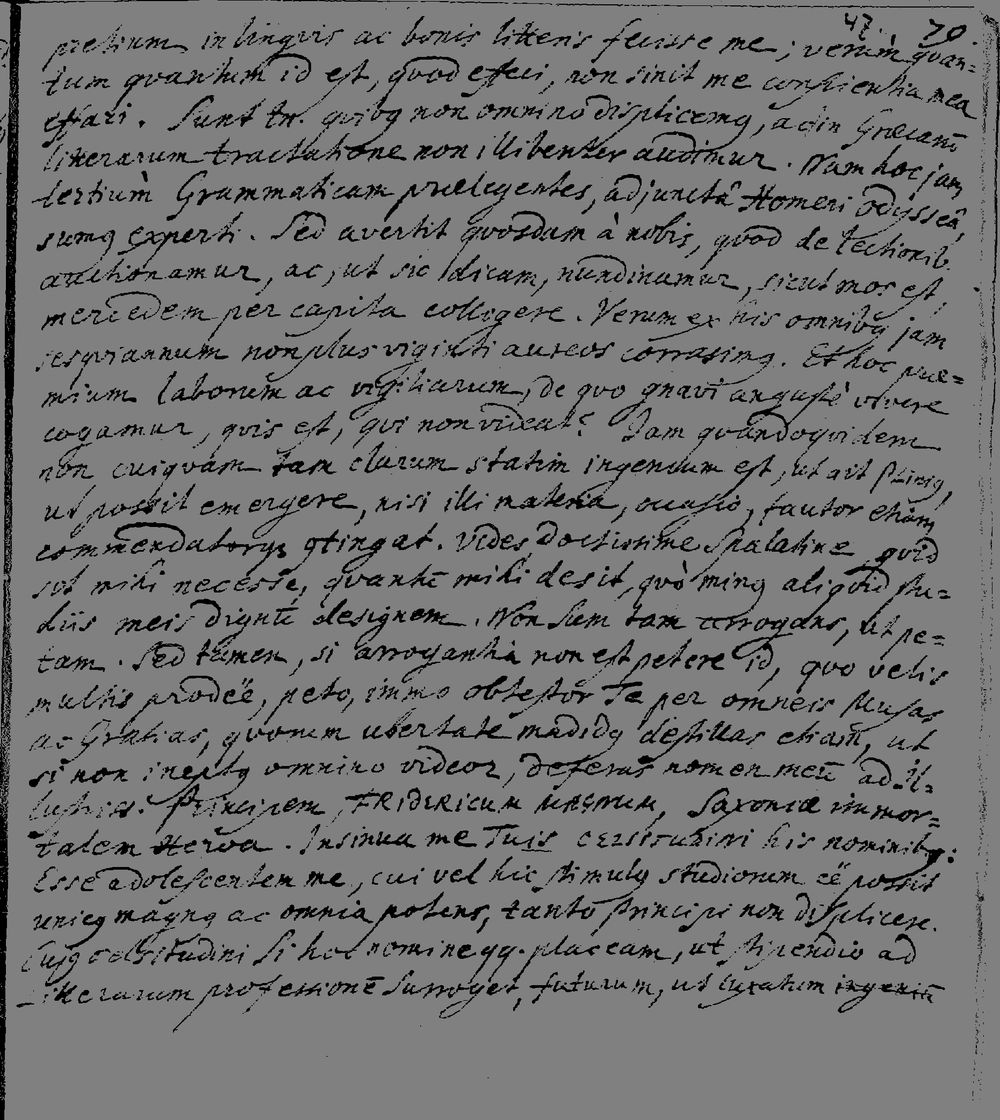 47. 70.
pretium in linguis ac bonis litteris fecisse me; verùm quan-
tum quantum id est, quod effeci, non sinit me conscientia mea
effari. Sunt tn. quibq non omnino displicemq, ac in Græcarū
litterarum tractatione non illibenter audimur. Nam hoc jam
tertiùm Grammaticam prælegentes, adjunctâ Homeri Odysseâ,
sumq experti. Sed avertit quosdam à nobis, quod de lectionib.
auctionamur, ac, ut sic dicam, nundinamur, sicut mos est,
mercedem per capita colligere. Verum ex his omnibq jam
sesquiannum non plus viginti aureos corrasimq. Et hoc præ-
mium laborum ac vigiliarum, de quo gnavi angustè vivere
cogamur, quis est, qui non videat? Jam quandoquidem
non cuiquam tam clarum statim ingenium est, ut ait Pliniq,
ut possit emergere, nisi illi materia, occasio, fautor etiam
commendatorq 9tingat. Vides, doctissime Spalatine, quid
sit mihi necesse, quantū mihi desit, quò minq aliquid stu-
diis meis dignū designem. Non sum tam arrogans, ut pe-
tam. Sed tamen, si arrogantia non est petere id, quo velis
multis prodeē, peto, immo obtestor Te per omneis Musas
ac Gratias, quorum ubertate madidq destillas etiam, ut
si non ineptq omnino videor, deferas nomen meū ad Il-
lustriss. Principem, FRIDERICUM MAGNUM, Saxoniæ immor-
talem Heroa. Insinua me Tuis CELSITUDINI his nominibq:
Esse adolescentem me, cui vel hic stimulq studiorum eē possit
unicq magnq ac omnia potens, tanto Principi non displicere.
Cujq celsitudini si hoc nomine qq. placeam, ut stipendio ad
litterarum professionē surroget, futurum, ut luxatum ingeniū